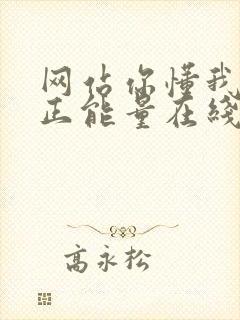 网站你懂我
正能量在线
高永松